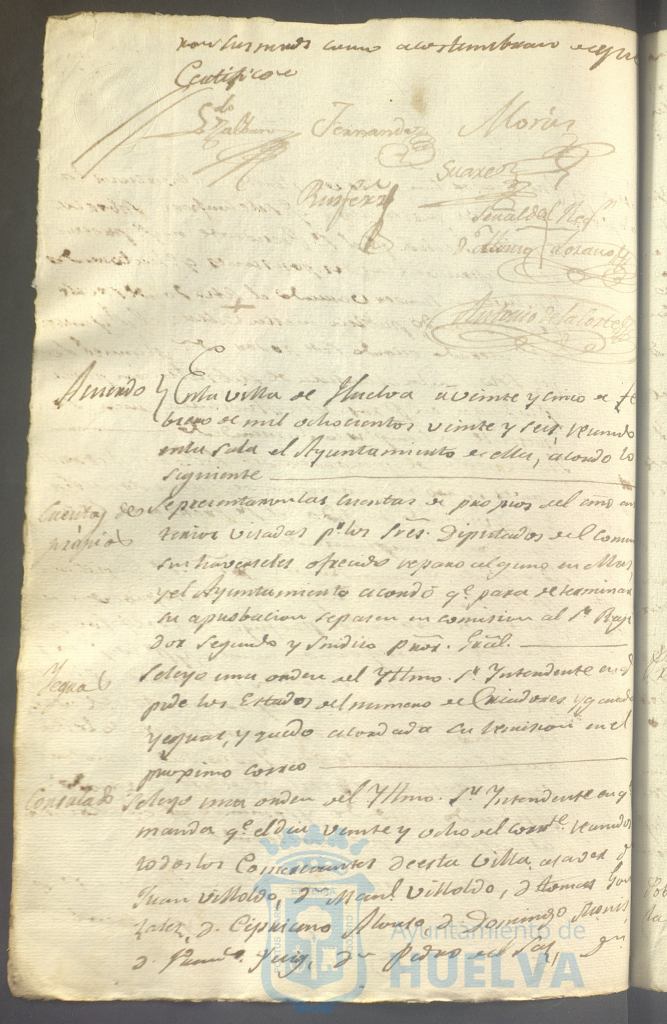 sus mrds como acostumbran de que
Certifico
Fernandez Morón
Suarez
Señal del Regr.
Dn. Alonso Lozano
Antonio de la Corte
Acuerdo En la villa de Huelva à veinte y cinco de fe
brero de mil ochocientos veinte y seis, reunido
en su sala el Ayuntamiento de ella, acordó lo
siguiente
Cuentas de propios
Se presentaron las cuentas de propios del año an
terior visadas pr. los Sres. Diputados del Comun
sin haverseles ofrecido reparo alguno en ellas,
y el Ayuntamiento acordó qe. para determinar
su aprobacion se pasen en comision al Sr. Regi
dor segundo y Sindico Pror. Gral.
Yeguas
Se leyó una orden del Yltmo. Sr. Intendente en q
pide los Estados del numero de Criadores y ganado
yeguar, y quedó acordada su remision en el
proximo correo
Consulado
Se leyó una orden del Yltmo. Sr. Intendente en qe.
manda qe. el dia veinte y ocho del corrte. reunidos
todos los Comerciantes de esta villa, asaver D
Juan Villoldo, D. Manl. Villoldo, D. Tomas Gon
zalez, D. Cipriano Alonso, D. Domingo
D. Puig, Dn. Pedro del Sol, Dn
Ayuntamiento de
HUELVA